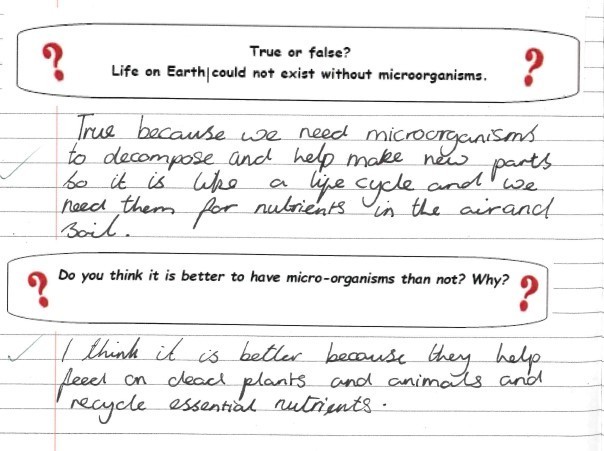 True or false?
Life on Earth|could not exist without microorganisms.
True because we need microorganisms
to decompose and help make new parts
So it is like a life cycle and we
need them for nutrients in the air and
soil.
Do you think it is better to have micro-organisms than not? Why?
I think it is better because they help
feed on dead plants and animals and
recycle essential nutrients.